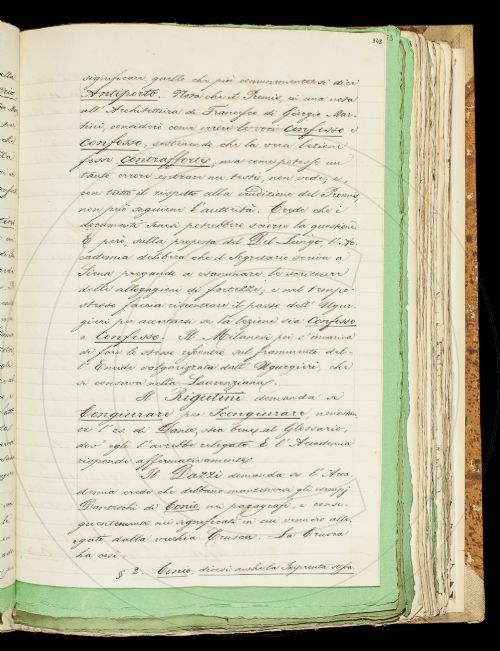 significare quello che più comunemente si dice
Antiporto. Nota che il Promis, in una nota
all'Architettura di Francesco di Giorgio Mar-
tini, considerò come errore le voci Confesso e
Confosso, sostenendo che la vera lezione
fosse Contrafforte, ma come potesse un
tanto errore entrare ne' testi, non vede, e,
con tutto il rispetto alla erudizione del Promis,
non può seguirne l'autorità. Crede che i
documenti senesi potrebbero sciorre la questione.
E però, sulla proposta del Del-Lungo, l'Ac-
cademia delibera che il Segretario scriva a
Siena pregando a esaminare le scritture
delle allogagioni di fortezze, e nel tempo
stesso faccia riscontrare il passo dell'Ugur-
gieri per accertare se la lezione sia Confesso
o Confosso. Il Milanesi poi s'incarica
di fare lo stesso riscontro sul frammento del-
l'Eneide volgarizzata dall'Ugurgieri, che
si conserva nella Laurenziana.
Il Rigutini domanda se
Congiurare per Scongiurare,
l'es. di Dante, stia bene al Glossario,
dov'egli l'avrebbe relegato. E l'Accademia
risponde affermativamente.
Il Dazzi domanda se l'Acca-
demia crede che debbano mantenersi gli esempj
Danteschi di Conio nei paragrafi, e conse-
guentemente nei significati in cui vennero alle-
gati dalla vecchia Crusca. La Crusca
ha così:
§ 2. Conio, dicesi anche la Impronta stessa